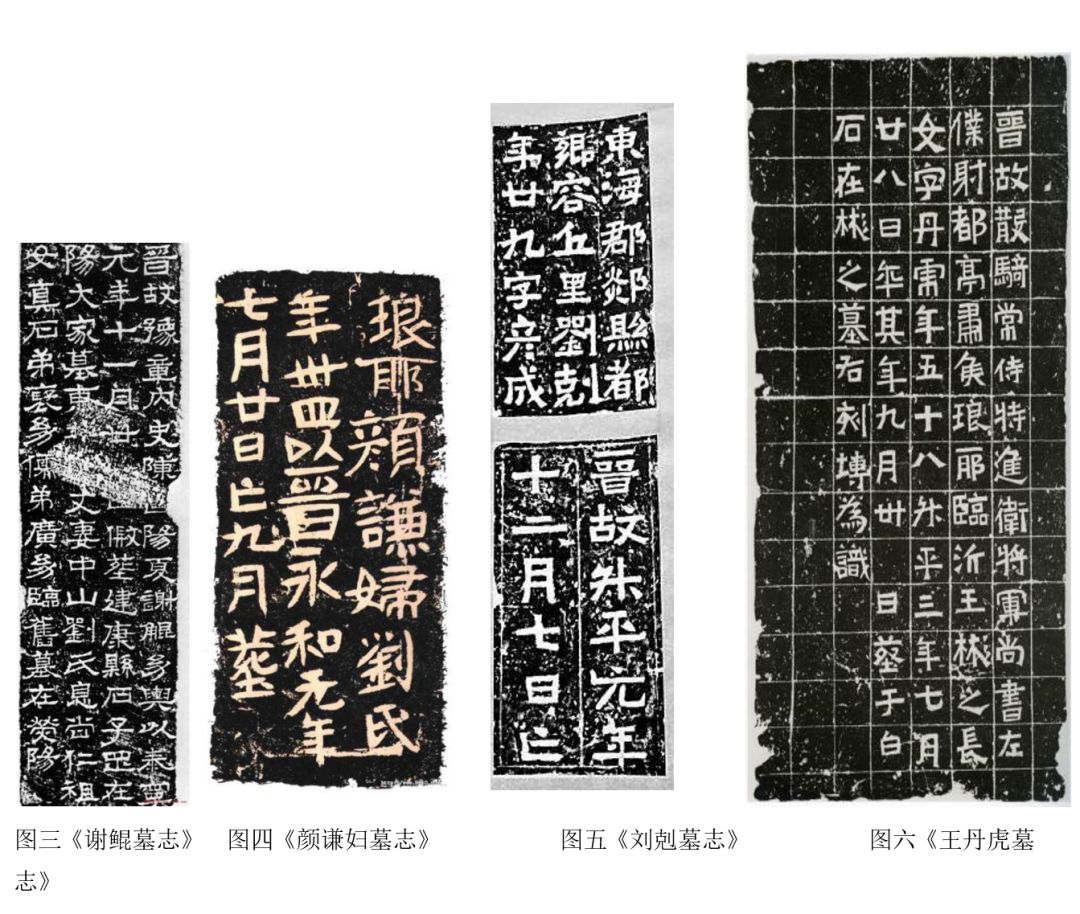 晉故豫章內史陳國陽夏謝鯤幼輿以泰寧
元年十一月廿假葬建康縣石子罡在
陽大家墓東丈妻中山劉氏息尚仁祖
女真石弟裒幼儒弟廣幼臨舊墓在熒陽
琅耶顏謙婦劉氏
年卅四以晉永和元年
七月廿日亡九月葬
東海郡郯縣都
鄉容丘里劉剋
年廿九字彥成
晉故升平元年
十二月七日亡
晉故散騎常侍特進衛將軍尚書左
僕射都亭肅侯琅耶臨沂王彬之長
女字丹虎年五十八升平三年七月
廿八日卒其年九月卅日葬于白
石在彬之墓右刻塼為識
图三《谢鲲墓志》 图四《颜谦妇墓志》 图五《刘剋墓志》 图六《王丹虎墓
志》